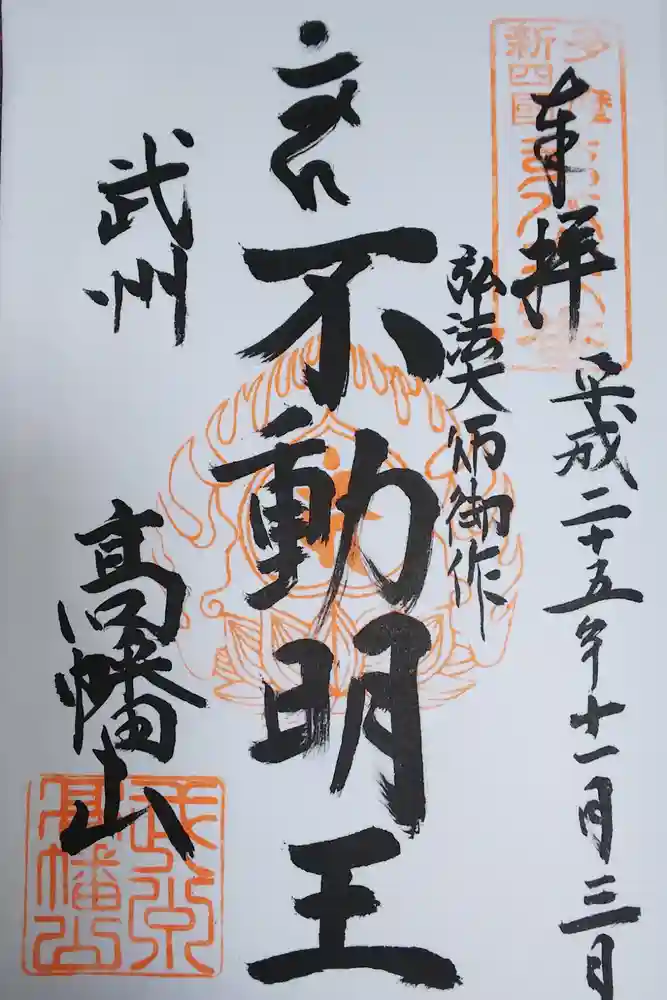 奉拝
平成二十五年十一月三日
弘法大師御作
不動明王
武州
高幡山
多摩
新四国
武州
高幡山